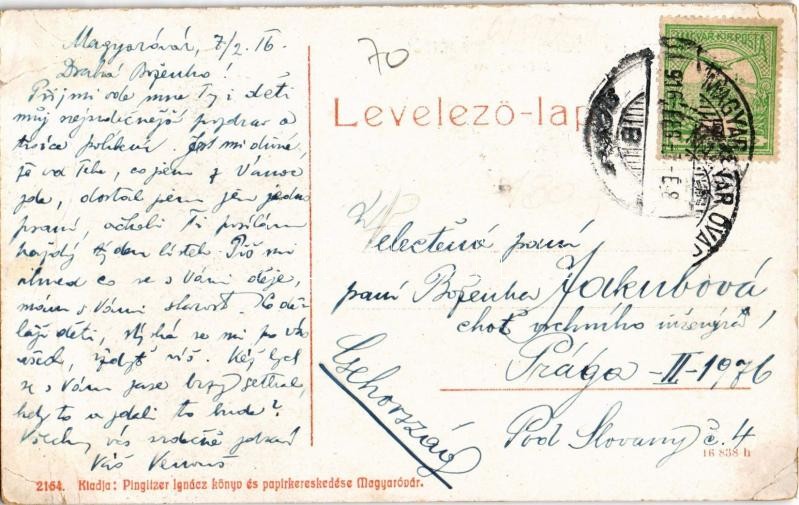 Magyaróvár, 7/2. 16.
Drahá Boženko!
Přijmi ode mne Ty i děti
můj nejsrdečnější pozdrav a
tisíce polibků. Jest mi divné,
že od Tebe, co jsem z Vánoc
zde, dostal jsem jen jedno
psaní, ačkoli Ti posílám
každý týden lístek. Piš mi
ihned co se s Vámi děje,
mám s Vámi starost. Co děl
ají děti, stýská se mi po vás
všech, když víš. Kéž bych
se s Vámi zase brzy setkal,
kdy to a jak to bude?
Všechny vás srdečně zdraví
Váš
70
Levelező-lap
MAGYAR KIR. POSTA
MAGYARÓVÁR
Velectěná paní
paní Boženka Jakubová
choť vrchního inženýra
Prága - II - 1976
Pod Slovany č. 4
Csehország
16 838 h
2164. Kiadja: Pinglitzer Ignácz könyv és papirkereskedése Magyaróvár.